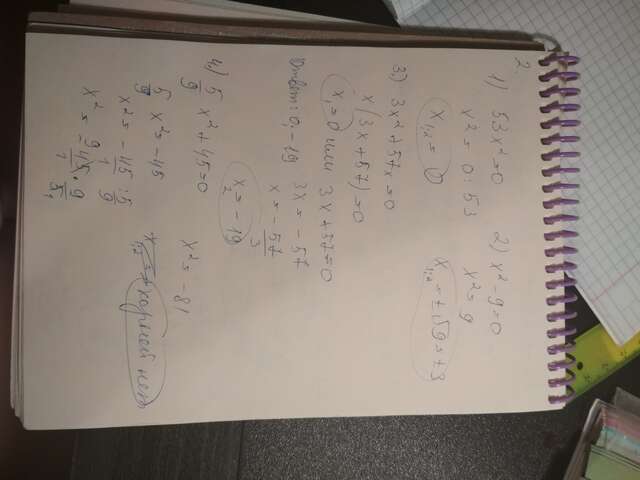 2.
1) 53x² = 0
x² = 0 : 53
x₁,₂ = 0
2) x² - 9 = 0
x² = 9
x₁,₂ = ±√9 = ±3
3) 3x² + 57x = 0
x(3x + 57) = 0
x₁ = 0 или 3x + 57 = 0
3x = -57
x = -57/3
x₂ = -19
Ответ: 0, -19
4) 5/9 x² + 45 = 0
5/9 x² = -45
x² = -45 : 5/9
x² = -45 · 9/5
x² = -81
корней нет